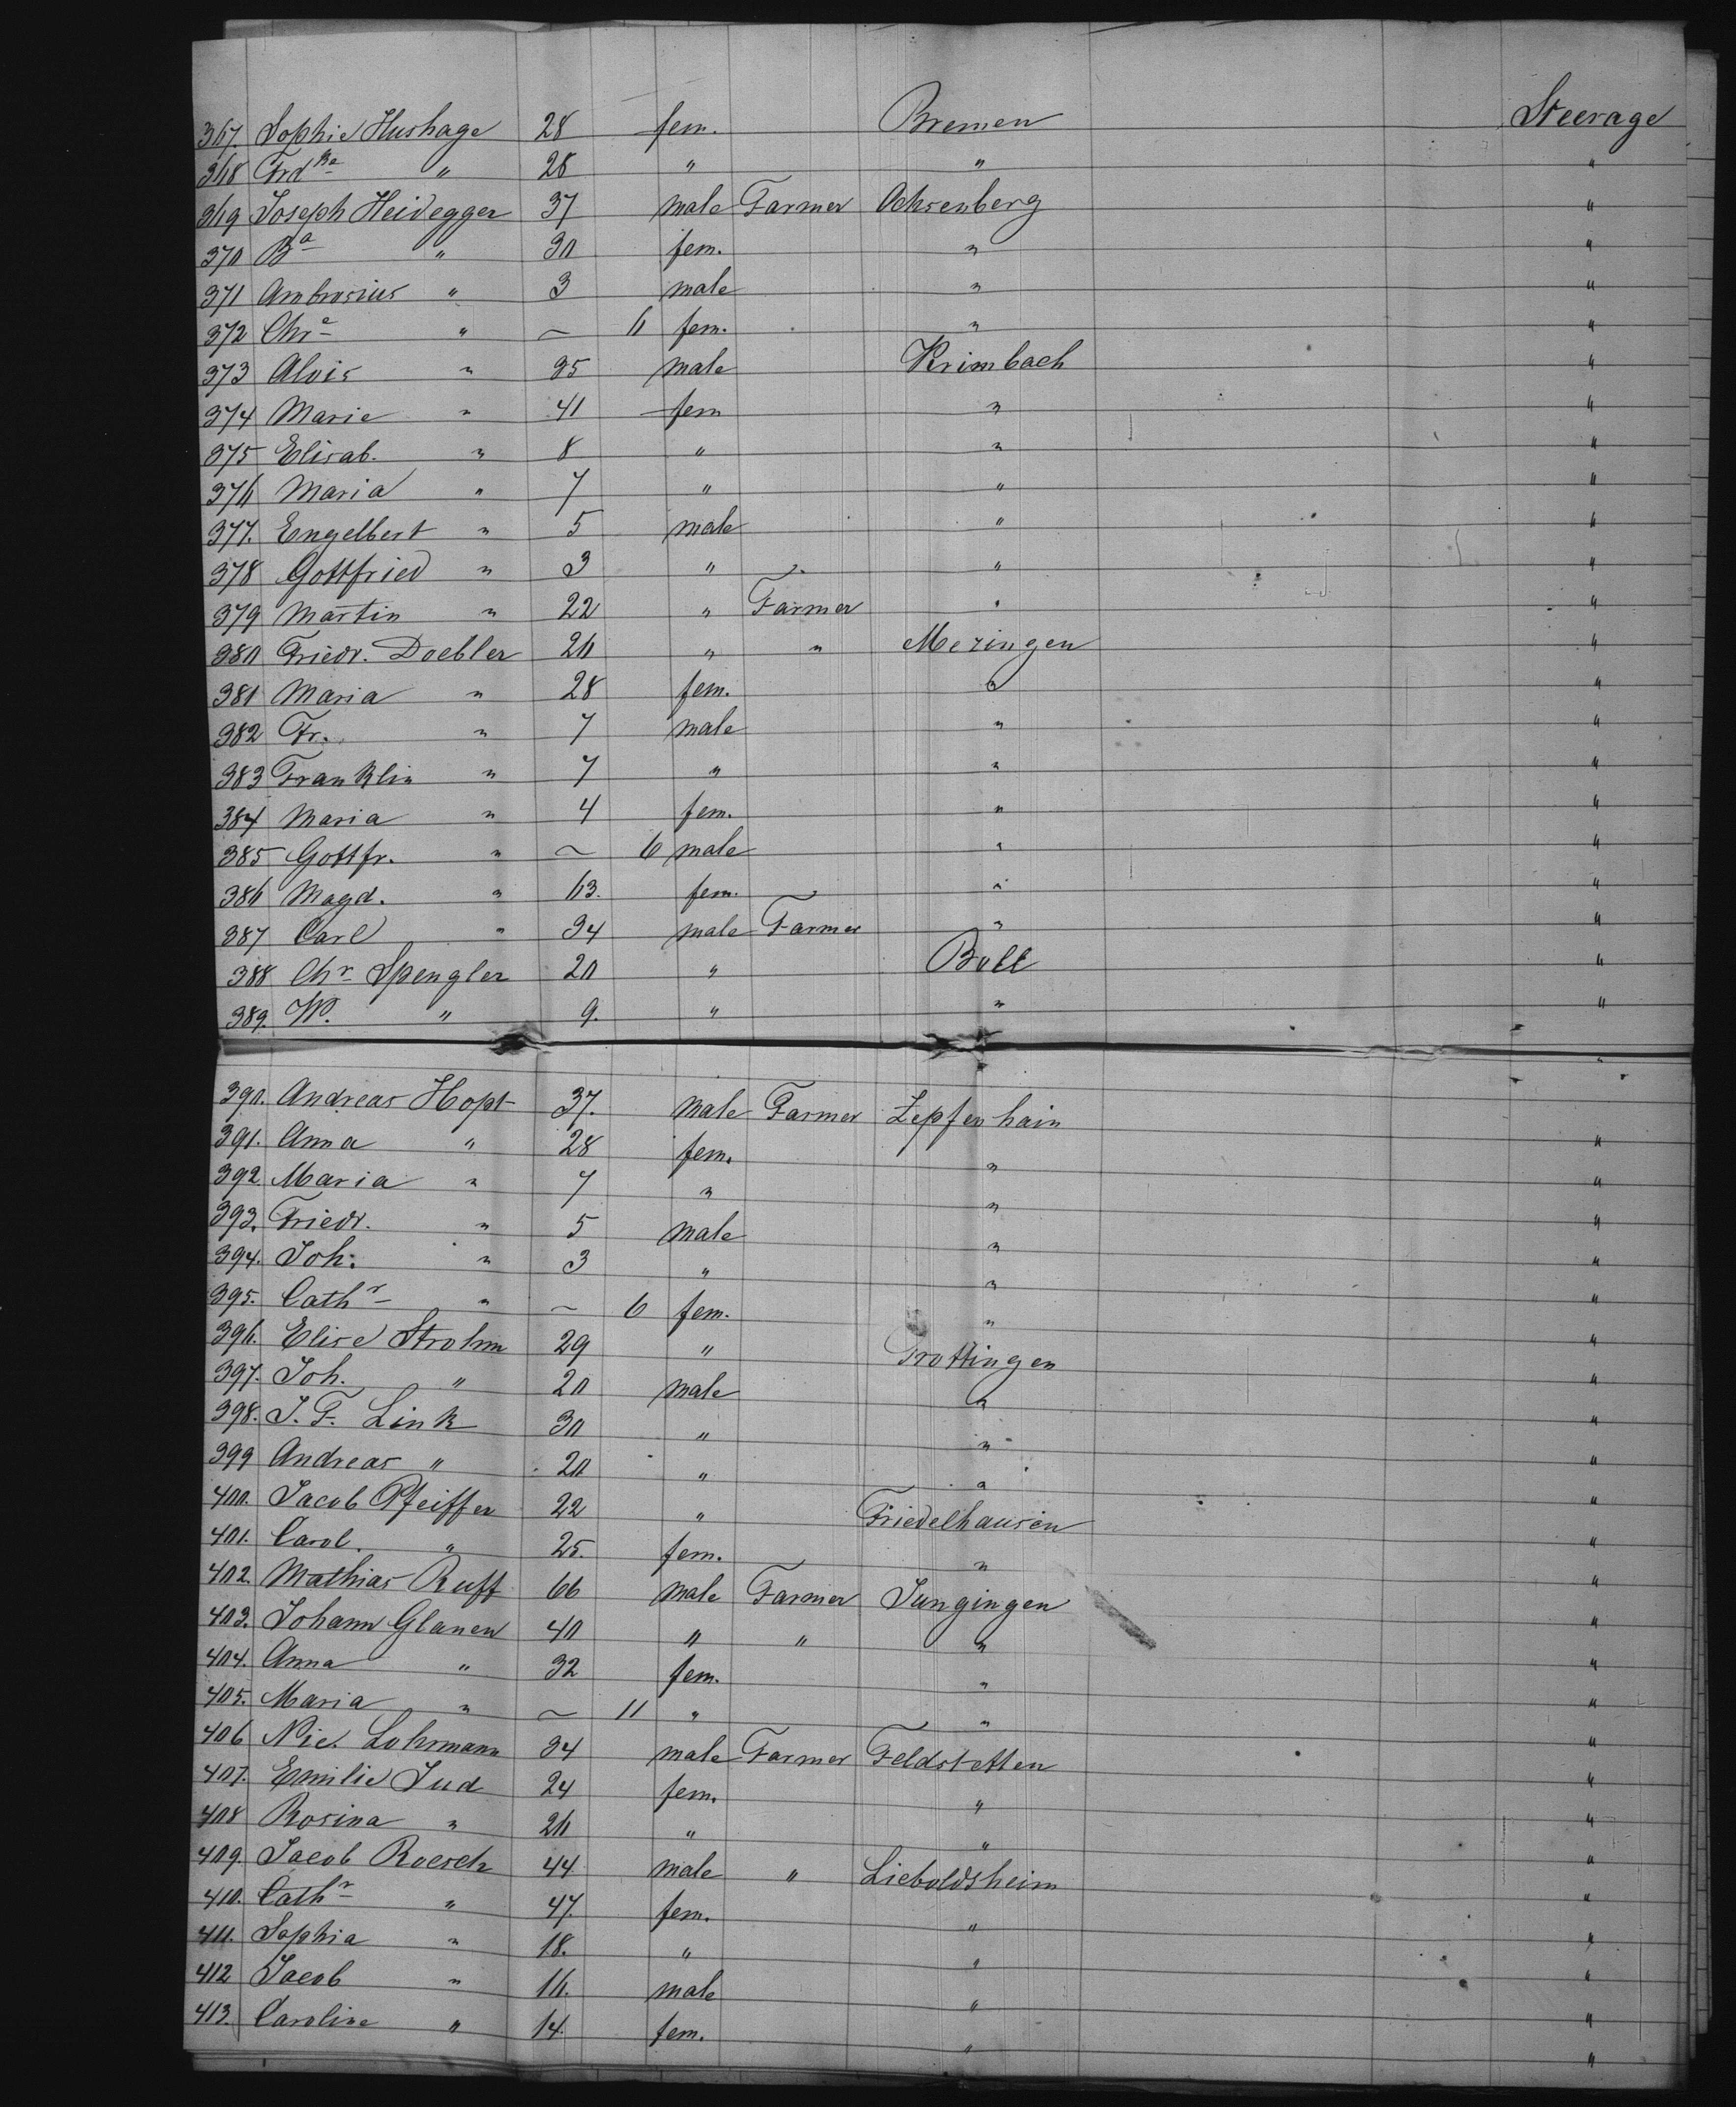 367. Sophie Hushage 28 fem. Bremen Steerage
368 Frdke " 28 " " "
369 Joseph Heidegger 37 male Farmer Ochsenberg "
370 Ba " 30 fem. " "
371 Ambrosius " 3 male " "
372 Chre " ~ 6 fem. " "
373 Alois " 35 male Krimbach "
374 Marie " 41 fem " "
375 Elisab. " 8 " " "
376 Maria " 7 " " "
377. Engelbert " 5 male " "
378 Gottfried " 3 " " "
379 Martin " 22 " Farmer " "
380 Friedr. Doebler 26 " " Mezingen "
381 Maria " 28 fem. " "
382 Fr. " 7 male " "
383 Franklin " 7 " " "
384 Maria " 4 fem. " "
385 Gottfr. " ~ 6 male " "
386 Magd. " 63. fem. " "
387 Carl " 34 male Farmer " "
388 Chr Spengler 20 " Boll "
389. W. " 9. " " "
390. Andreas Hopt 37. male Farmer Zepfenhain "
391. Anna " 28 fem. " "
392. Maria " 7 " " "
393. Friedr. " 5 male " "
394. Joh: " 3 " " "
395. Cathr " ~ 6 fem. " "
396. Elise Strohm 29 " Trottingen "
397. Joh. " 20 male " "
398. J. F. Link 30 " " "
399 Andreas " 20 " " "
400. Jacob Pfeiffer 22 " Friedelhausen "
401. Carol. " 25. fem. " "
402. Mathias Ruff 66 male Farmer Jungingen "
403. Johann Glanen 40 " " " "
404. Anna " 32 fem. " "
405. Maria " ~ 11 " " "
406 Nic. Lohrmann 34 male Farmer Feldstetten "
407. Emilie Jud 24 fem. " "
408 Rosina " 26 " " "
409. Jacob Roesch 44 male " Lieboldsheim "
410. Cathr " 47. fem. " "
411. Sophia " 18. " " "
412 Jacob " 16. male " "
413. Caroline " 14. fem. " "